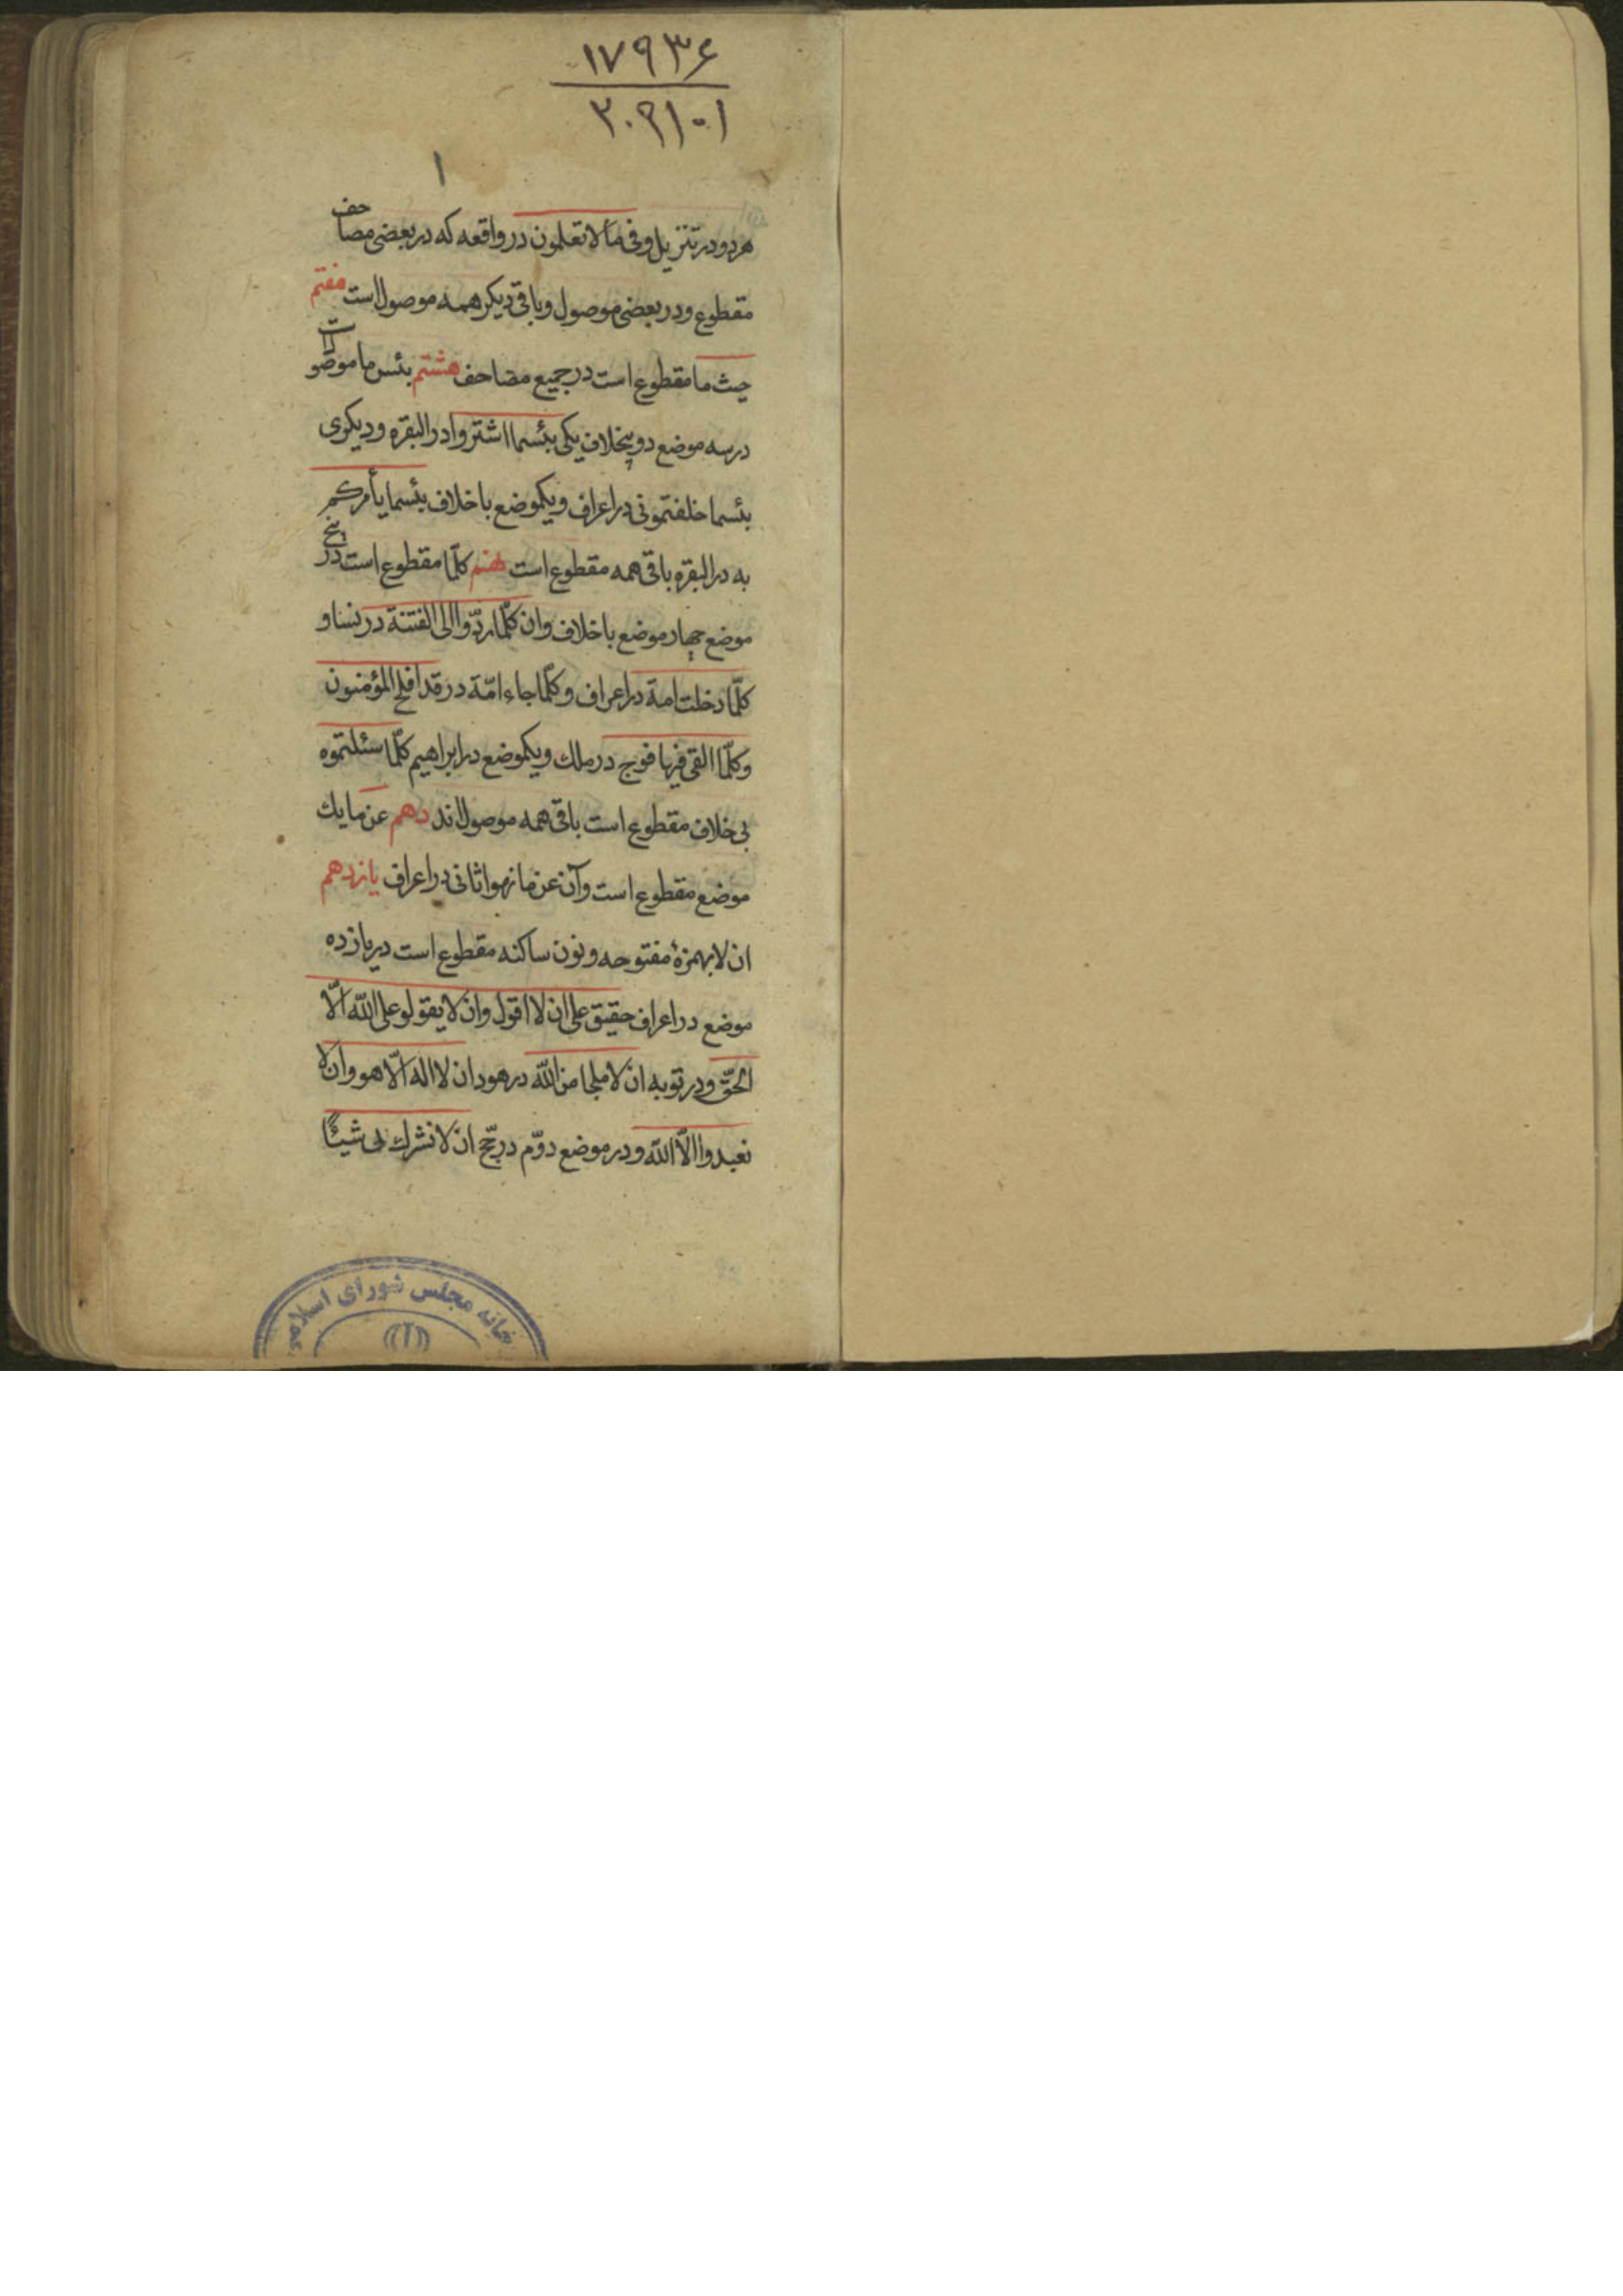 ۱۷۹۳۶
۳۰۹۱۰۱
۱
هر دو در تنزیل و فی ما لا تعلمون در واقعه که در بعضی مصاحف
مقطوع و در بعضی موصول و باقی دیکر همه موصول است هفتم
حیث ما مقطوع است در جمیع مصاحف هشتم بئس ما موصولست
در سه موضع دو بیخلاف یکی بئسما اشتروا در البقره و دیکری
بئسما خلفتمونی در اعراف و یکموضع با خلاف بئسما یأمرکم
به در البقره باقی همه مقطوع است نهم کلّما مقطوع است در پنج
موضع چهار موضع با خلاف وان کلّما ردّوا الی الفتنة در نسا و
کلّما دخلت امة در اعراف و کلّما جاء امّة در قد افلح المؤمنون
و کلّما القی فیها فوج در ملك و یکموضع در ابراهیم کلّما سئلتموه
بی خلاف مقطوع است باقی همه موصول اند دهم عن ما یك
موضع مقطوع است و آن عن ما نهوا ثانی در اعراف یازدهم
ان لا بهمزهٔ مفتوحه و نون ساکنه مقطوع است در یازده
موضع در اعراف حقیق علی ان لا اقول وان لا یقولو علی اللّه الّا
الحقّ و در توبه ان لا ملجا من اللّه در هود ان لا اله الّا هو وان لا
تعبدوا الّا اللّه و در موضع دوّم در حجّ ان لا نشرك بی شیئًا
خانه مجلس شورای اسلامی